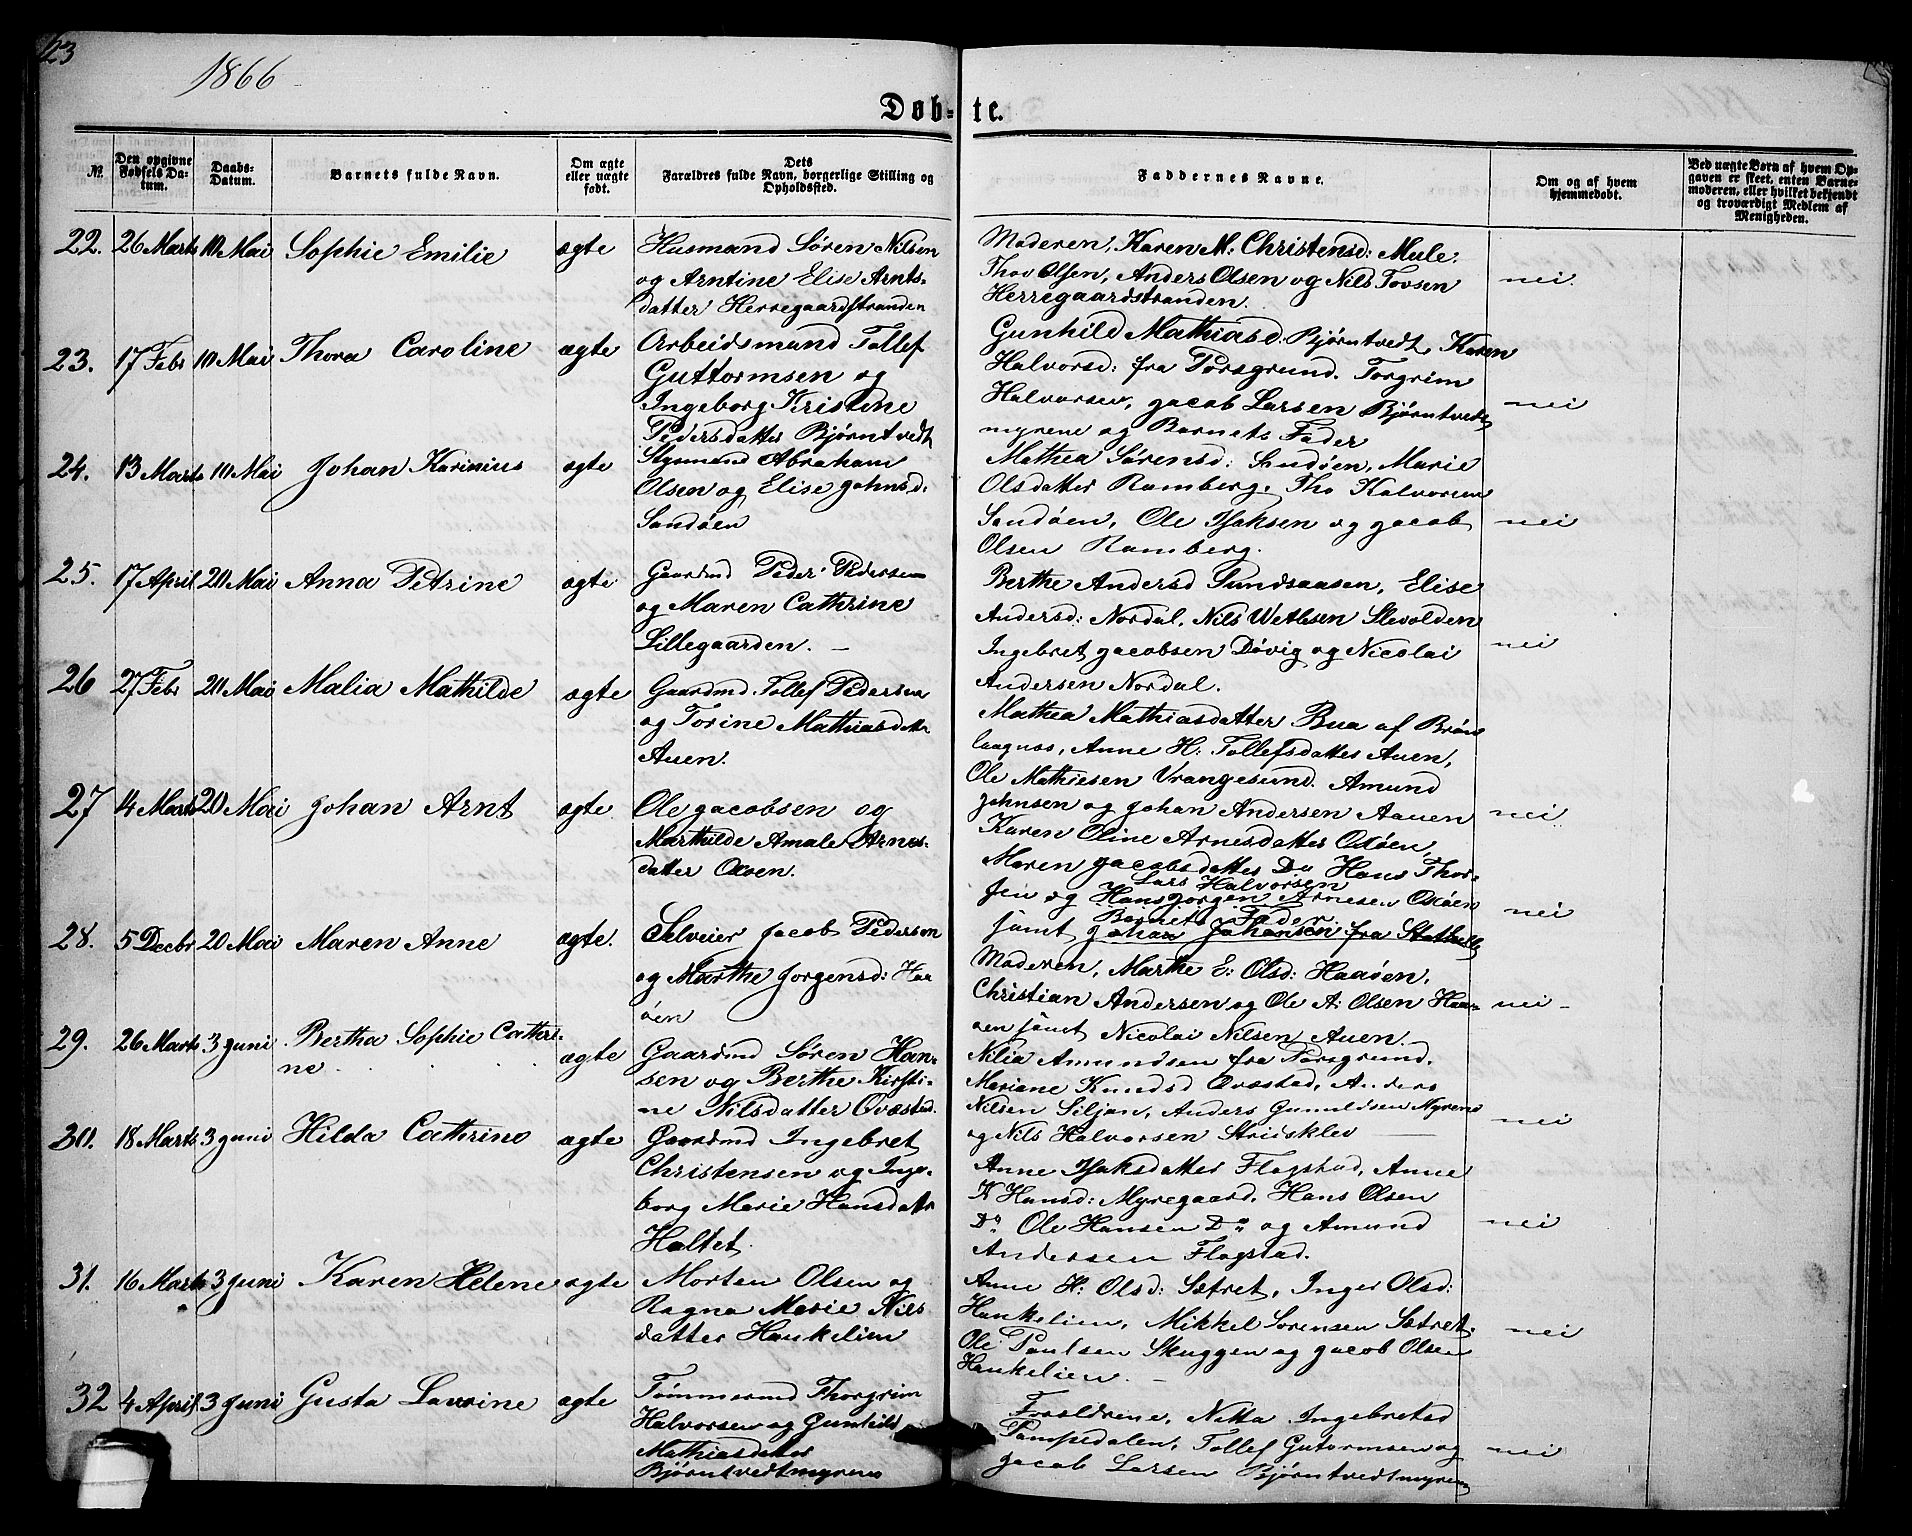 23
1866
Døb-te.
No.
Den opgivne Fødsels Datum.
Daabs-Datum.
Barnets fulde Navn.
Om ægte eller uægte født.
Dets Forældres fulde Navn, borgerlige Stilling og Opholdssted.
Faddernes Navne.
Om og af hvem hjemmedøbt.
Ved uægte Børn af hvem Opgaven er skeet, enten Barnemoderen, eller hvilket bekjendt og troværdigt Medlem af Menigheden.
22. 26 Marts 10 Mai Sophie Emilie ægte
Husmand Søren Nilsen
og Arntine Elise Arnts-
datter Herregaardstranden
Moderen, Karen M: Christensd: Mule.
Thov Olsen, Anders Olsen og Nils Tovsen
Herregaardstranden.
nei.
23. 17 Febr 10 Mai Thora Caroline ægte
Arbeidsmand Tollef
Guttormsen og
Ingeborg Kristine
Pedersdatter Bjørntvedt
Gunhild Mathiasd. Bjørntvedt, Karen
Halvorsd: fra Porsgrund. Torgrim
Halvorsen, Jacob Larsen Bjørntvedt
myrene og Barnets Fader
nei
24. 13 Marts 10 Mai Johan Karinius ægte
Abraham
Olsen og Elise Johnsd.
Sandøen
Mathea Sørensd: Sandøen, Marie
Olsdatter Ramberg. Tho Halvorsen
Sandøen, Ole Isaksen og Jacob
Olsen Ramberg.
nei
25. 17 April 20 Mai Anna Petrine ægte
Gaardmd Peder Pedersen
og Maren Cathrine
Lillegaarden. —
Berthe Andersd Sundsaasen, Elise
Andersd: Nordal, Nils Wetlesen Slevolden
Ingebret Jacobsen Døvig og Nicolai
Andersen Nordal.
nei
26 27 Febr 20 Mai Malia Mathilde ægte
Gaardmd Tollef Pedersen
og Torine Mathiasdatter
Auen.
Mathea Mathiasdatter Bua af Brøn
laugnes, Anne H: Tollefsdatter Auen,
Ole Mathiesen Vrangesund. Amund
Johnsen og Johan Andersen Aauen
nei
27 14 Marts 20 Mai Johan Arnt ægte
Ole Jacobsen og
Marthilde Amale Arnes-
datter Oxøen.
Karen Oline Arnesdatter Oxøen,
Maren Jacobsdatter Do Hans Thor-
Lars Halvorsen
sen og Hans Jørgen Arnesen Oxøen
Barnets Fader
samt Johan Johansen fra Stathelle
nei
28. 5 Decbr 20 Mai Maren Anne ægte.
Selveier Jacob Pedersen
og Marthe Jorgensd: Haa
øen
Moderen, Marthe E: Olsd: Haaøen,
Christian Andersen og Ole A: Olsen Haa-
øen samt Nicolai Nilsen Auen.
nei -
29. 26 Marts 3 Juni Bertha Sophie Cathri-
ne ægte
Gaardmd Søren Han-
sen og Berthe Kirsti-
ne Nilsdatter Ovæstad.
Nilia Amundsen fra Porsgrund.
Mariane Knudsd Ovæstad, Anders
Nilsen Siljan, Anders Gunuldsen Myrene
og Nils Halvorsen Stridsklev
nei
30. 18 Marts 3 Juni Hilda Cathrine ægte
Gaardmd Ingebret
Christensen og Inge-
borg Marie Hansdatr
Haltet.
Anne Isaksdatter Flagstad, Anne
K Hansd: Myregaard. Hans Olsen
Do. Ole Hansen Do og Amund
Andersen Flagstad.
nei
31. 16 Marts 3 Juni Karen Helene ægte
Morten Olsen og
Ragna Marie Nils
datter Hankelien
Anne H: Olsd: Sætret, Inger Olsd:
Hankelien, Mikkel Sørensen Sætret.
Ole Paulsen Skuggen og Jacob Olsen
Hankelien. —
nei
32 4 April 3 Juni Gusta Lavrine ægte
Tømmermd Thorgrim
Halvorsen og Gunhild
Mathiasdatter
Bjørntvedtmyrene
Forældrene, Nitta Ingebretsd
Tampedalen, Tollef Gutormsen og
Jacob Larsen Bjørntvedtmyren
nei